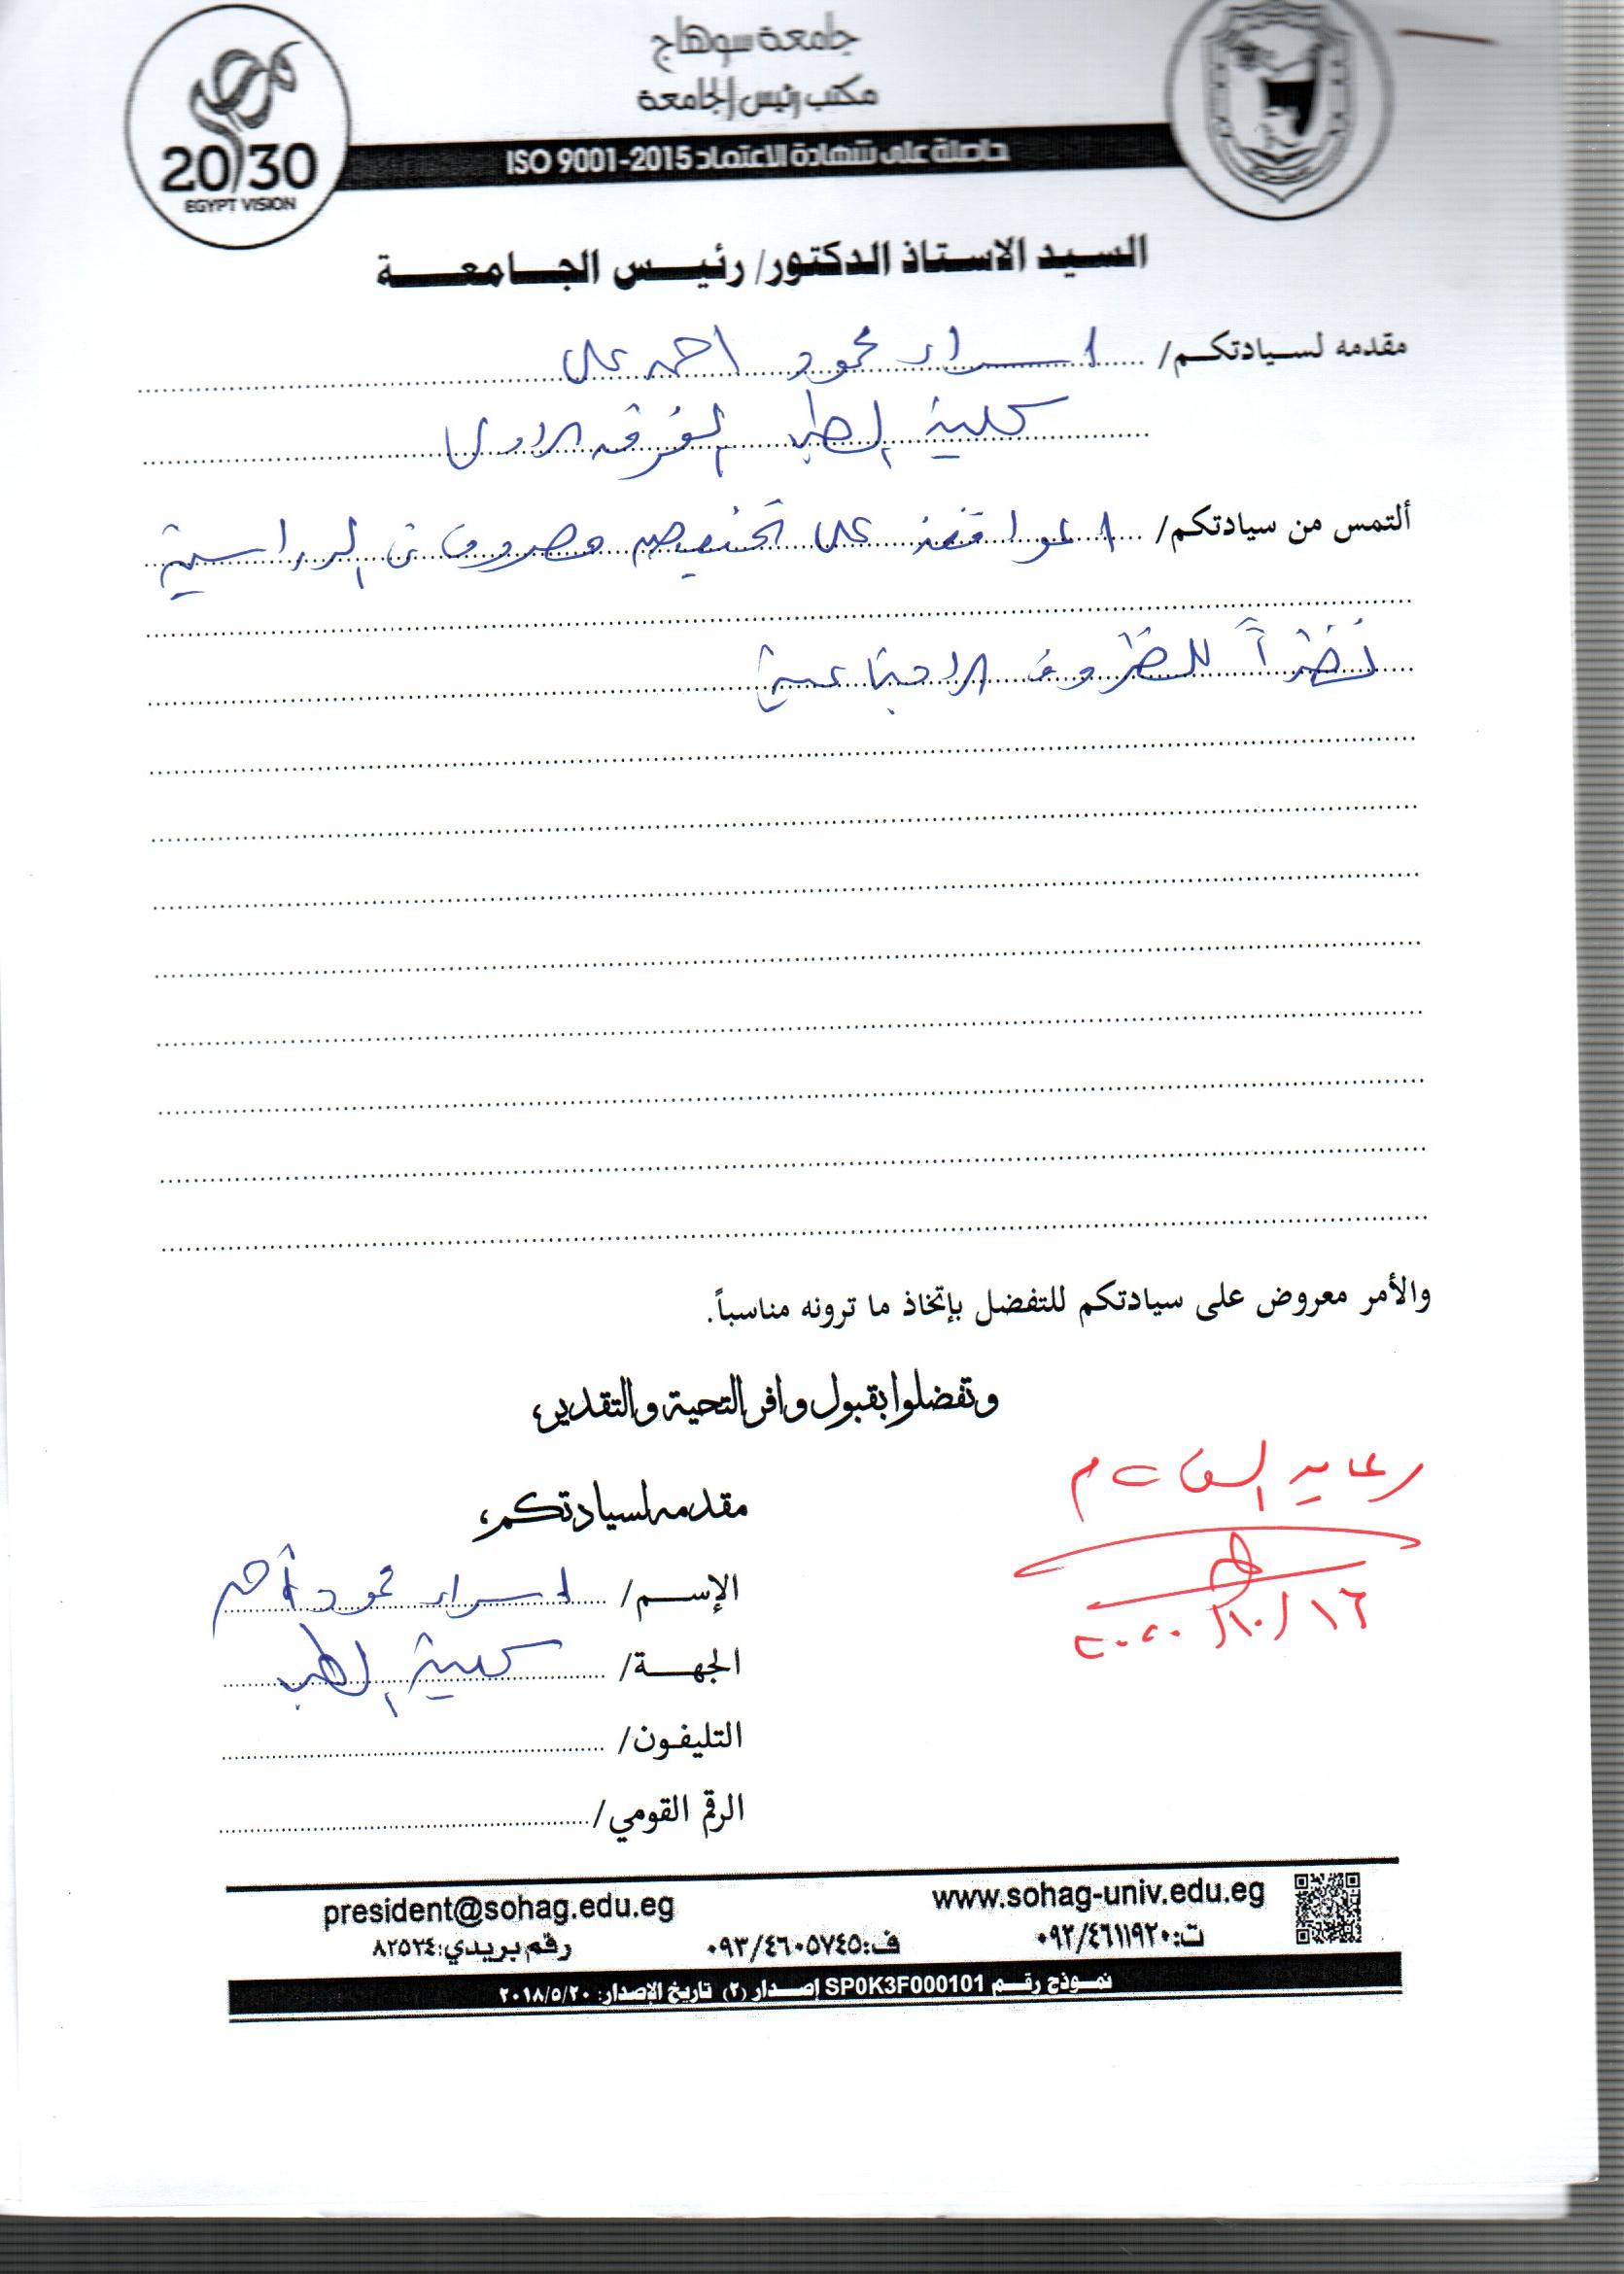 جامعة سوهاج
مكتب رئيس الجامعة
حاصلة على شهادة الاعتماد ISO 9001-2015
20 30
EGYPT VISION
السيد الاستاذ الدكتور/ رئيس الجامعة
مقدمه لسيادتكم/ اسراء محمود احمد على
كلية الطب الفرقه الاولى
ألتمس من سيادتكم/ الموافقة على تخفيض مصروفاتى الدراسية
نظراً للظروف الاجتماعية
والأمر معروض على سيادتكم للتفضل بإتخاذ ما ترونه مناسباً.
وتفضلوا بقبول وافر التحية والتقدير،
مقدمه لسيادتكم،
رعاية
الإسم/ اسراء محمود أحمد
٢٠٢٠/١٠/١٦
الجهة/ كلية الطب
التليفون/
الرقم القومي/
www.sohag-univ.edu.eg
president@sohag.edu.eg
ت:٠٩٣/٤٦١١٩٢٠ ف:٠٩٣/٤٦٠٥٧٤٥ رقم بريدي:٨٢٥٢٤
نموذج رقم SP0K3F000101 إصدار (٢) تاريخ الإصدار: ٢٠١٨/٥/٢٠